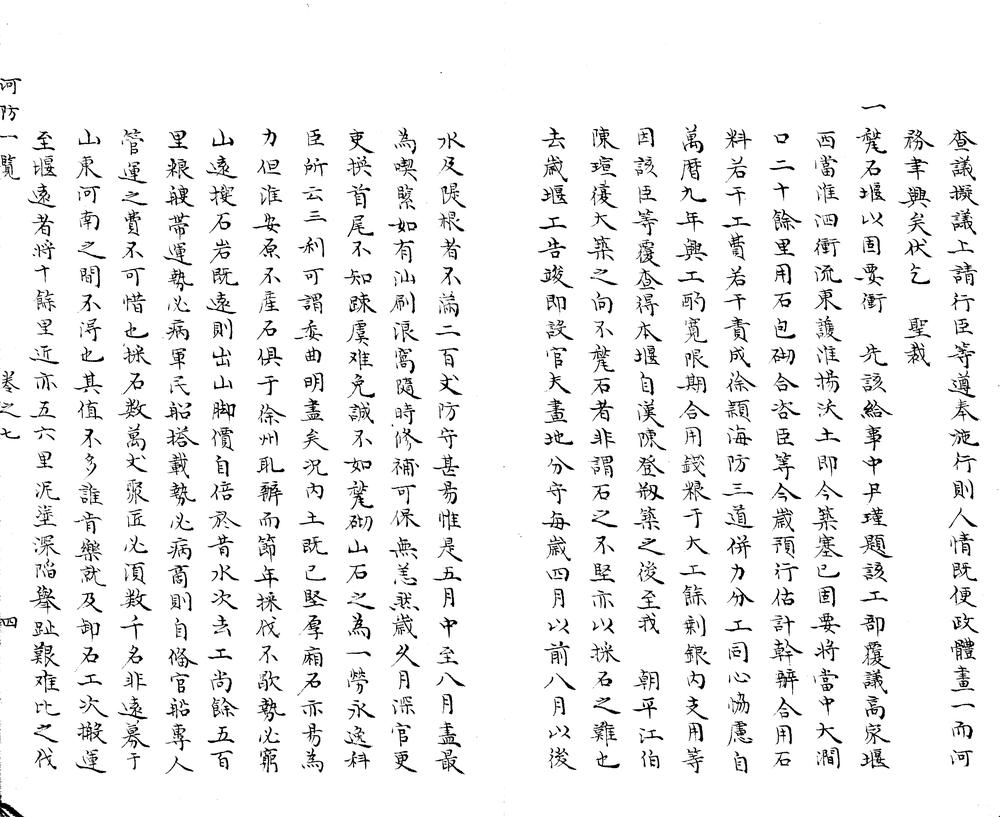 查議擬議上請行臣等遵奉施行則人情既便政體畫一而河
務聿興矣伏乞　聖裁
一甃石堰以固要衝　先該給事中尹瑾題該工部覆議高家堰
西當淮泗衝流東護淮揚沃土即今築塞已固要將當中大澗
口二十餘里用石包砌合咨臣等今歲預行估計幹辦合用石
料若干工費若干責成徐潁海防三道併力分工同心協慮自
萬曆九年興工酌寬限期合用錢粮于大工餘剩銀內支用等
因該臣等覆查得本堰自漢陳登剏築之後至我　朝平江伯
陳瑄復大築之向不甃石者非謂石之不堅亦以採石之難也
去歲堰工告竣即設官夫畫地分守每歲四月以前八月以後
水及隄根者不滿二百丈防守甚易惟是五月中至八月盡最
為喫緊如有汕刷浪窩隨時修補可保無恙然歲久月深官更
吏換首尾不知踈虞难免誠不如甃砌山石之為一勞永逸科
臣所云三利可謂委曲明盡矣況內土既已堅厚廂石亦易為
力但淮安原不產石俱于徐州取辦而節年採伐不歇勢必窮
山遠搜石岩既遠則出山脚價自倍於昔水次去工尚餘五百
里粮艘帶運勢必病軍民船搭載勢必病商則自俻官船專人
管運之費不可惜也採石數萬丈聚匠必須數千名非遠募于
山東河南之間不淂也其值不多誰肯樂就及卸石工次搬運
至堰遠者將十餘里近亦五六里泥塗深陷舉趾艱难比之伐
河防一覽　卷之七　四